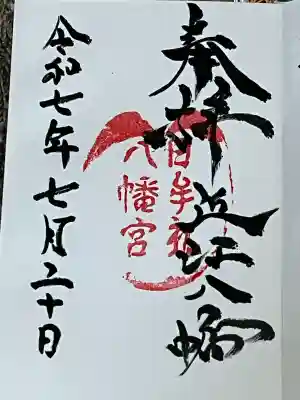 奉拝 近江八幡
日牟禮
八幡宮
令和七年七月二十日